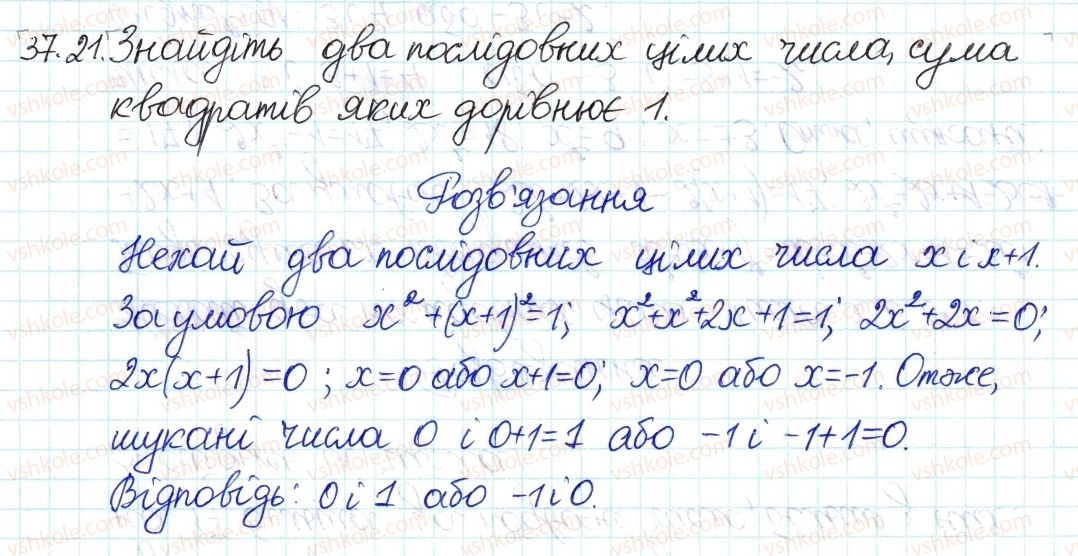 37.21. Знайдіть два послідовних цілих числа, сума
квадратів яких дорівнює 1.
Розв'язання
Нехай два послідовних цілих числа x і x+1.
За умовою x²+(x+1)²=1; x²+x²+2x+1=1; 2x²+2x=0;
2x(x+1)=0; x=0 або x+1=0; x=0 або x=-1. Отже,
шукані числа 0 і 0+1=1 або -1 і -1+1=0.
Відповідь: 0 і 1 або -1 і 0.